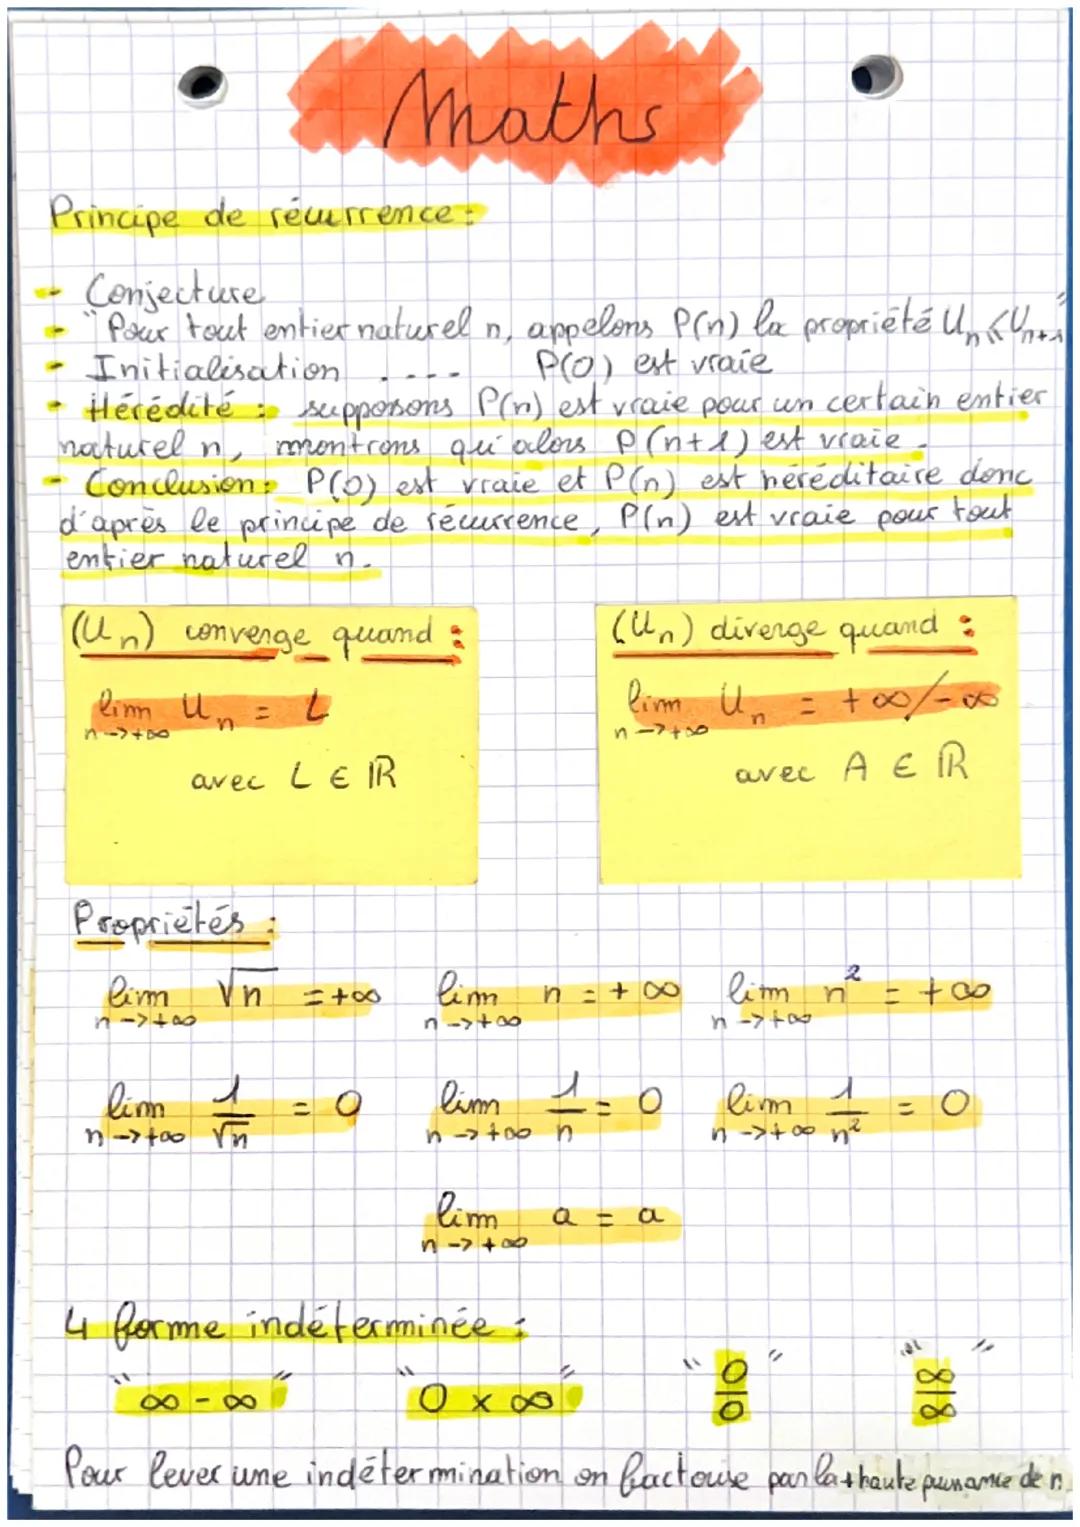 Maths
Principe de récurrence :
- Conjecture
- "Pour tout entier naturel n, appelons P(n) la propriété Un ≤ Un+1"
- Initialisation .... P(0) est vraie
- Hérédité : supposons P(n) est vraie pour un certain entier
naturel n, montrons qu'alors P(n+1) est vraie.
- Conclusion : P(0) est vraie et P(n) est héréditaire donc
d'après le principe de récurrence, P(n) est vraie pour tout
entier naturel n.
(Un) converge quand :
lim Un = L
n->+∞
avec L ∈ ℝ
(Un) diverge quand :
lim Un = +∞/-∞
n->+∞
avec A ∈ ℝ
Propriétés :
lim √n = +∞ lim n = +∞ lim n² = +∞
n->+∞ n->+∞ n->+∞
lim 1/√n = 0 lim 1/n = 0 lim 1/n² = 0
n->+∞ n->+∞ n->+∞
lim a = a
n->+∞
4 forme indéterminée :
"∞ - ∞" "0 x ∞" "0/0" "∞/∞"
Pour lever une indétermination on factorise par la + haute puissance de n